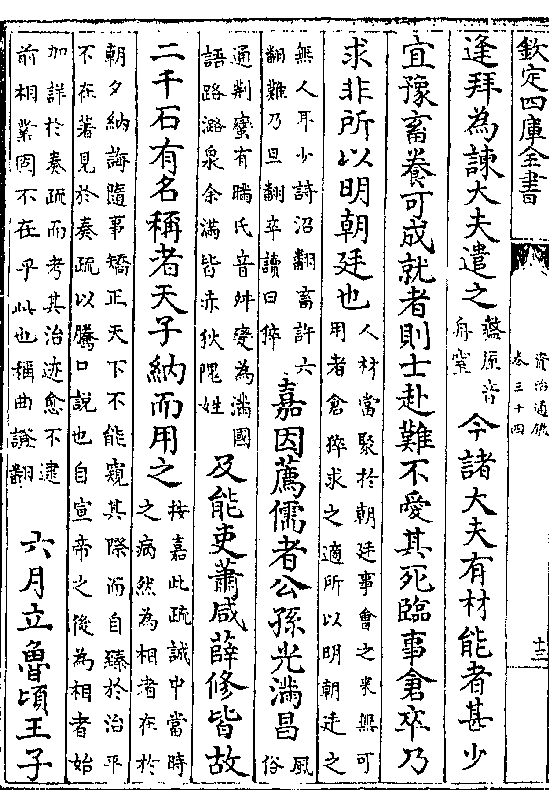 欽定四庫全書
資治通鑑
卷三十四
十三
逢拜為諫大夫遣之
盩厔音
舟窒
今諸大夫有材能者甚少
宜豫畜養可成就者則士赴難不愛其死臨事倉卒乃
求非所以明朝廷也
人材當聚於朝廷事會之來無可
用者倉猝求之適所以明朝廷之
無人耳少詩沼翻畜許六
翻難乃旦翻卒讀曰猝
嘉因薦儒者公孫光滿昌
風
俗
通荆蠻有瞞氏音舛變為滿國
語路潞泉余滿皆赤狄隗姓
及能吏蕭咸薛修皆故
二千石有名稱者天子納而用之
按嘉此疏誠中當時
之病然為相者在於
朝夕納誨隨事矯正天下不能窺其際而自臻於治平
不在著見於奏疏以騰口說也自宣帝之後為相者始
加詳於奏疏而考其治迹愈不逮
前相業固不在乎此也稱曲證翻
六月立魯頃王子